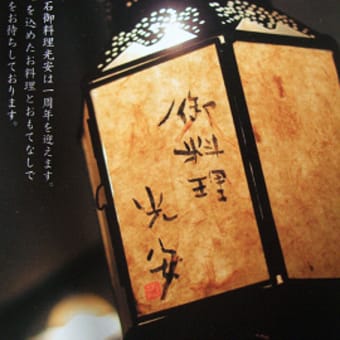 石御料理光安は一周年を迎えます。
を込めたお料理とおもてなしで
をお待ちしております。
御料理
光安